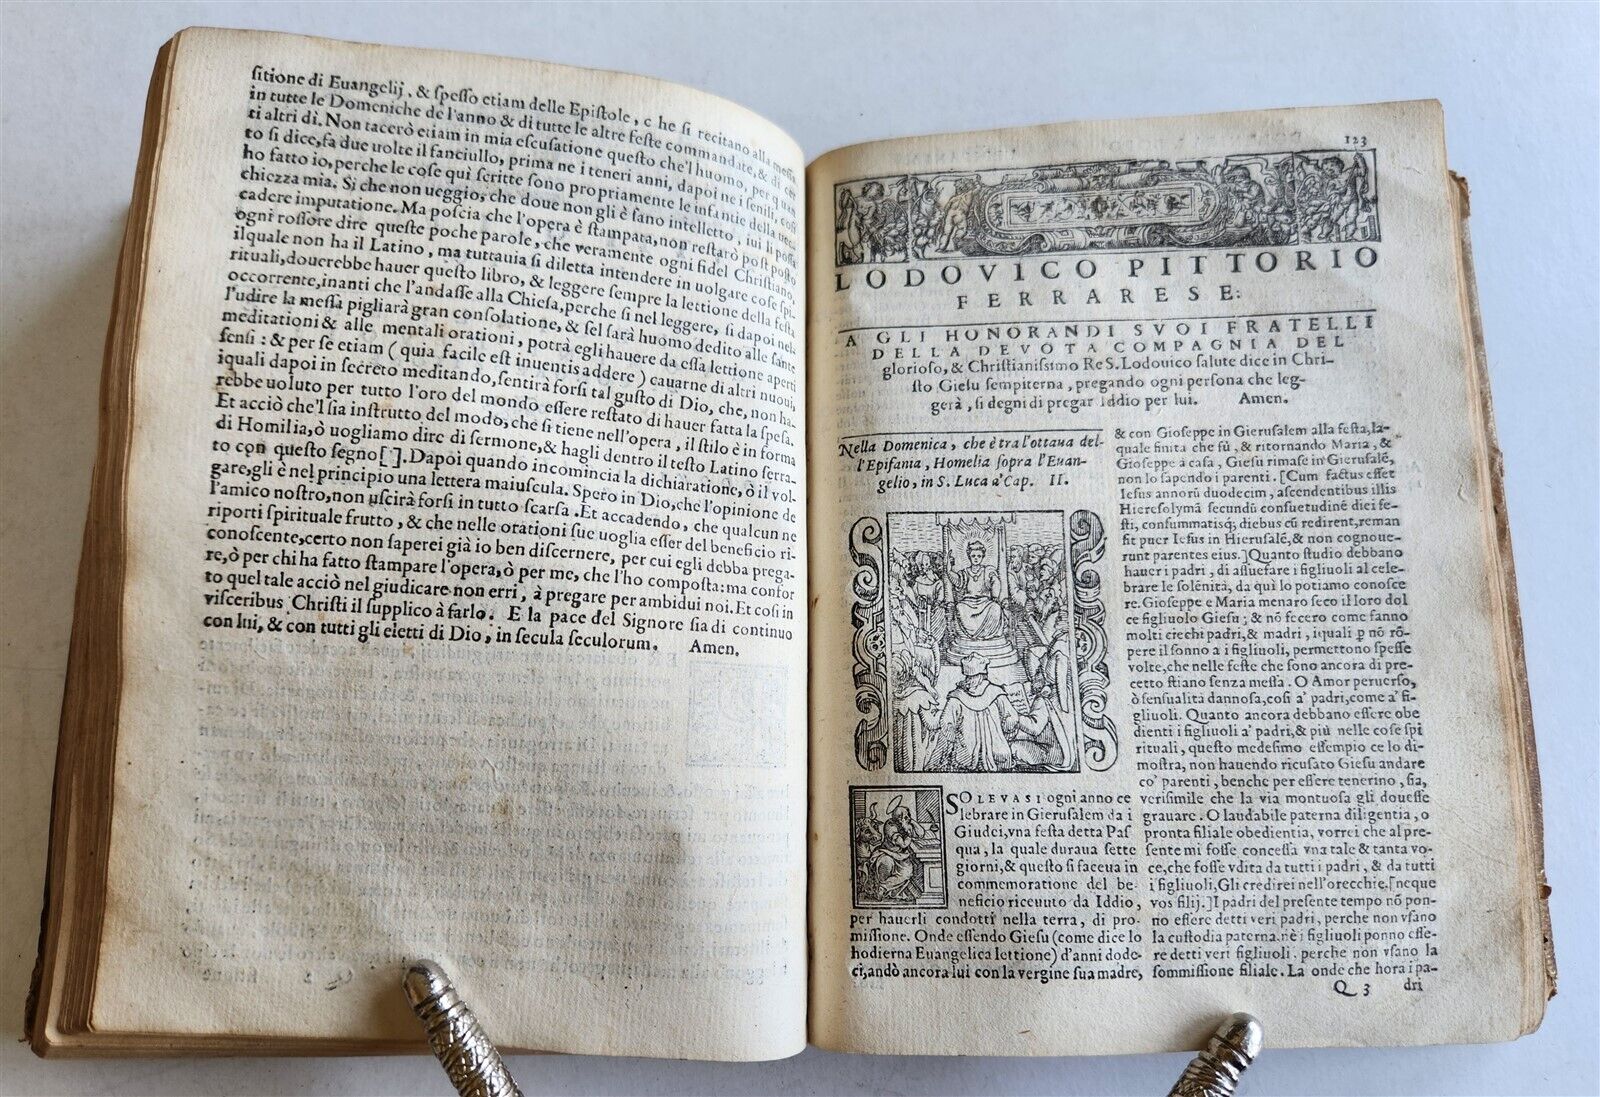 sitione di Euangelij, & spesso etiam delle Epistole, che si recitano alla messa
in tutte le Domeniche de l'anno & di tutte le altre feste commandate, & di cer
ti altri dì. Non tacerò etiam in mia escusatione questo che'l huomo, per quan
to si dice, fa due uolte il fanciullo, prima ne i teneri anni, dapoi ne i senili, così
ho fatto io, perche le cose quì scritte sono propriamente le infantie della uec
chiezza mia. Si che non ueggio, che doue non gli è sano intelletto, iui li possa
cadere imputatione. Ma poscia che l'opera è stampata, non restarò post posto
ogni rossore dire queste poche parole, che veramente ogni fidel Christiano,
ilquale non ha il Latino, ma tuttauia si diletta intendere in uolgare cose spi-
rituali, douerebbe hauer questo libro, & leggere sempre la lettione della festa
occorrente, inanti che l'andasse alla Chiesa, perche sì nel leggere, sì dapoi nela
l'udire la messa pigliarà gran consolatione, & sel sarà huomo dedito alle sante
meditationi & alle mentali orationi, potrà egli hauere da essa lettione aperti
sensi: & per se etiam (quia facile est inuentis addere) cauarne di altri nuoui,
iquali dapoi in secreto meditando, sentirà forsi tal gusto di Dio, che, non ha-
rebbe uoluto per tutto l'oro del mondo essere restato di hauer fatta la spesa.
Et acciò che'l sia instrutto del modo, che si tiene nell'opera, il stilo è in forma
di Homilia, ò uogliamo dire di sermone, & hagli dentro il testo Latino serra-
to con questo segno [ ]. Dapoi quando incomincia la dichiaratione, ò il vol-
gare, gli è nel principio una lettera maiuscula. Spero in Dio, che l'opinione de
l'amico nostro, non uscirà forsi in tutto scarsa. Et accadendo, che qualcun ne
riporti spirituale frutto, & che nelle orationi sue uoglia esser del beneficio ri-
conoscente, certo non saperei già io ben discernere, per cui egli debba prega-
re, ò per chi ha fatto stampare l'opera, ò per me, che l'ho composta: ma confor
to quel tale acciò nel giudicare non erri, à pregare per ambidui noi. Et così in
visceribus Christi il supplico à farlo. E la pace del Signore sia di continuo
con lui, & con tutti gli eietti di Dio, in secula seculorum. Amen.
123
LODOVICO PITTORIO
FERRARESE:
A GLI HONORANDI SVOI FRATELLI
DELLA DEVOTA COMPAGNIA DEL
glorioso, & Christianissimo Re S. Lodouico salute dice in Chri-
sto Giesu sempiterna, pregando ogni persona che leg-
gerà, si degni di pregar Iddio per lui. Amen.
Nella Domenica, che è tra l'ottaua del-
l'Epifania, Homelia sopra l'Euan-
gelio, in S. Luca a' Cap. II.
SOLEVASI ogni anno ce
lebrare in Gierusalem da i
Giudei, vna festa detta Pas
qua, la quale duraua sette
giorni, & questo si faceua in
commemoratione del be-
neficio riceuuto da Iddio,
per hauerli condotti nella terra, di pro-
missione. Onde essendo Giesu (come dice lo
hodierna Euangelica lettione) d'anni dode-
ci, andò ancora lui con la vergine sua madre,
& con Gioseppe in Gierusalem alla festa, la-
quale finita che fù, & ritornando Maria, &
Gioseppe a casa, Giesu rimase in Gierusalē,
non lo sapendo i parenti. [Cum factus esset
Iesus annorū duodecim, ascendentibus illis
Hierosolymā secundū consuetudinē diei fe-
sti, consummatisq; diebus cū redirent, reman
sit puer Iesus in Hierusalē, & non cognoue-
runt parentes eius.] Quanto studio debbano
hauer i padri, di assuefare i figliuoli al cele-
brare le solēnità, da quì lo potiamo conosce
re. Gioseppe e Maria menaro seco il loro dol
ce figliuolo Giesu; & nō fecero come fanno
molti ciechi padri, & madri, iquali p nō rō-
pere il sonno a i figliuoli, permettono spesse
volte, che nelle feste che sono ancora di pre-
cetto stiano senza messa. O Amor peruerso,
ò sensualità dannosa, così a' padri, come a' fi-
gliuoli. Quanto ancora debbano essere obe
dienti i figliuoli a' padri, & più nelle cose spi
rituali, questo medesimo essempio ce lo di-
mostra, non hauendo ricusato Giesu andare
co' parenti, benche per essere tenerino, sia,
verisimile che la via montuosa gli douesse
grauare. O laudabile paterna diligentia, o
pronta filiale obedientia, vorrei che al pre-
sente mi fosse concessa vna tale & tanta vo-
ce, che fosse vdita da tutti i padri, & da tutti
i figliuoli, Gli credirei nell'orecchie, [neque
vos filij.] I padri del presente tempo nō pon-
no essere detti veri padri, perche non vsano
la custodia paterna. nè i figliuoli ponno esse-
re detti veri figliuoli. perche non vsano la
sommissione filiale. La onde che hora i pa-
Q 3 dri